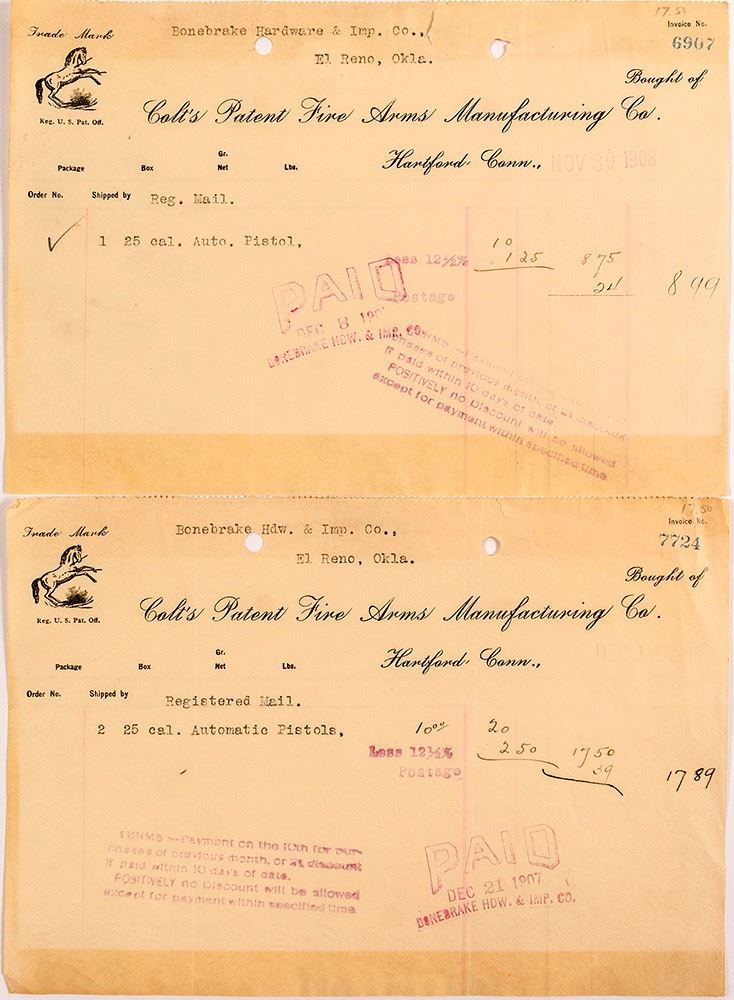 17.50
Trade Mark
Bonebrake Hardware & Imp. Co.,
Invoice No.
6907
El Reno, Okla.
Bought of
Reg. U. S. Pat. Off.
Colt's Patent Fire Arms Manufacturing Co.
Package Box Gr. Net Lbs.
Hartford, Conn., NOV 30
Order No. Shipped by Reg. Mail.
1 25 cal. Auto. Pistol,
10
Less 12½% 1 25 8 75
Postage 24 8 99
PAID
DEC 8
BONEBRAKE HDW. & IMP. CO.
TERMS — Payment on
chases of previous month, or at discount
if paid within 10 days of date.
POSITIVELY no Discount will be allowed
except for payment within specified time
17.50
Trade Mark
Bonebrake Hdw. & Imp. Co.,
Invoice No.
7724
El Reno, Okla.
Bought of
Reg. U. S. Pat. Off.
Colt's Patent Fire Arms Manufacturing Co.
Package Box Gr. Net Lbs.
Hartford, Conn.,
Order No. Shipped by
Registered Mail.
2 25 cal. Automatic Pistols, 10 00 20
Less 12½% 2 50 17 50
Postage 39 17 89
TERMS — Payment on the 10th for pur-
chases of previous month, or at discount
if paid within 10 days of date.
POSITIVELY no Discount will be allowed
except for payment within specified time
PAID
DEC 21 1907
BONEBRAKE HDW. & IMP. CO.